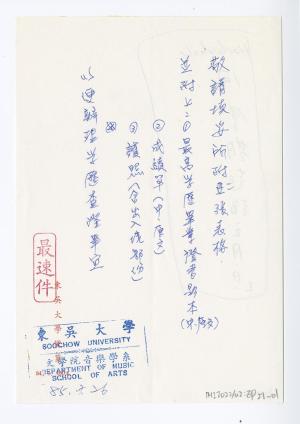 敬請填妥所附三張表格．
並附上：①最高学歷畢業證書影本（中.原文）
②成績單（中.原文）
③護照（含出入境部份）
以便辦理学歷查證事宜
最速件
東吳大學
SOOCHOW UNIVERSITY
文學院音樂學系
DEPARTMENT OF MUSIC
SCHOOL OF ARTS